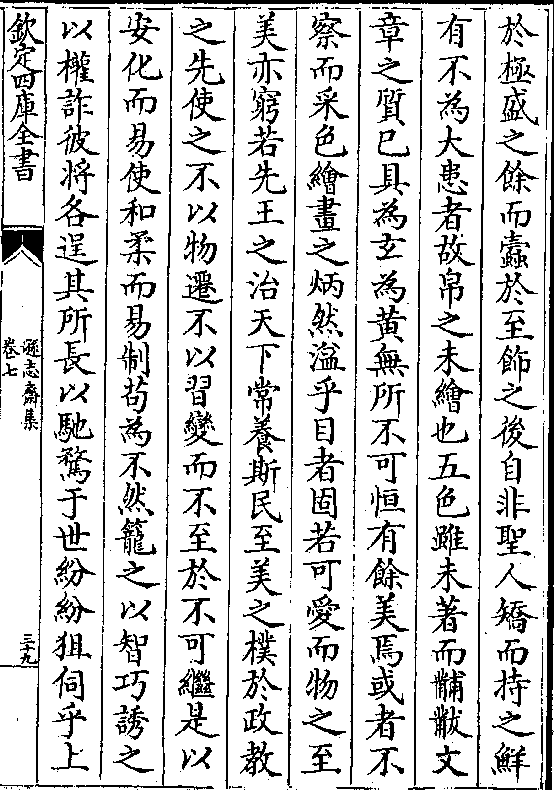 於極盛之餘而蠹於至飾之後自非聖人矯而持之鮮
有不為大患者故帛之未繪也五色雖未著而黼黻文
章之質已具為玄為黄無所不可恒有餘美焉或者不
察而采色繪畫之炳然溢乎目者固若可愛而物之至
美亦窮若先王之治天下常養斯民至美之樸於政教
之先使之不以物遷不以習變而不至於不可繼是以
安化而易使和柔而易制茍為不然籠之以智巧誘之
以權詐彼將各逞其所長以馳騖于世紛紛狙伺乎上
欽定四庫全書
遜志齋集
卷七
三十九